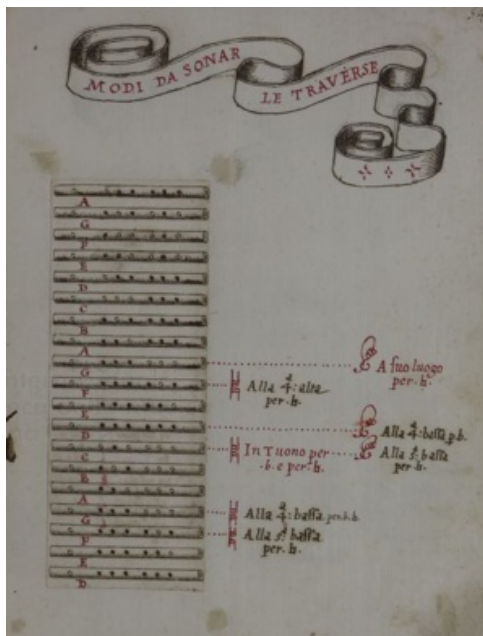 MODI DA SONAR
LE TRAVERSE
A
G
F
E
D
C
B
A
G
F
E
D
C
B
A
G
F
E
D
A suo luogo
per .♮.
Alla 4ª: alta
per .♮.
Alla 4ª: bassa p. b.
In Tuono per
.b. e per .♮.
Alla 5ª: bassa
per .♮.
Alla 4ª: bassa per.b.♮.
Alla 5ª: bassa
per .♮.